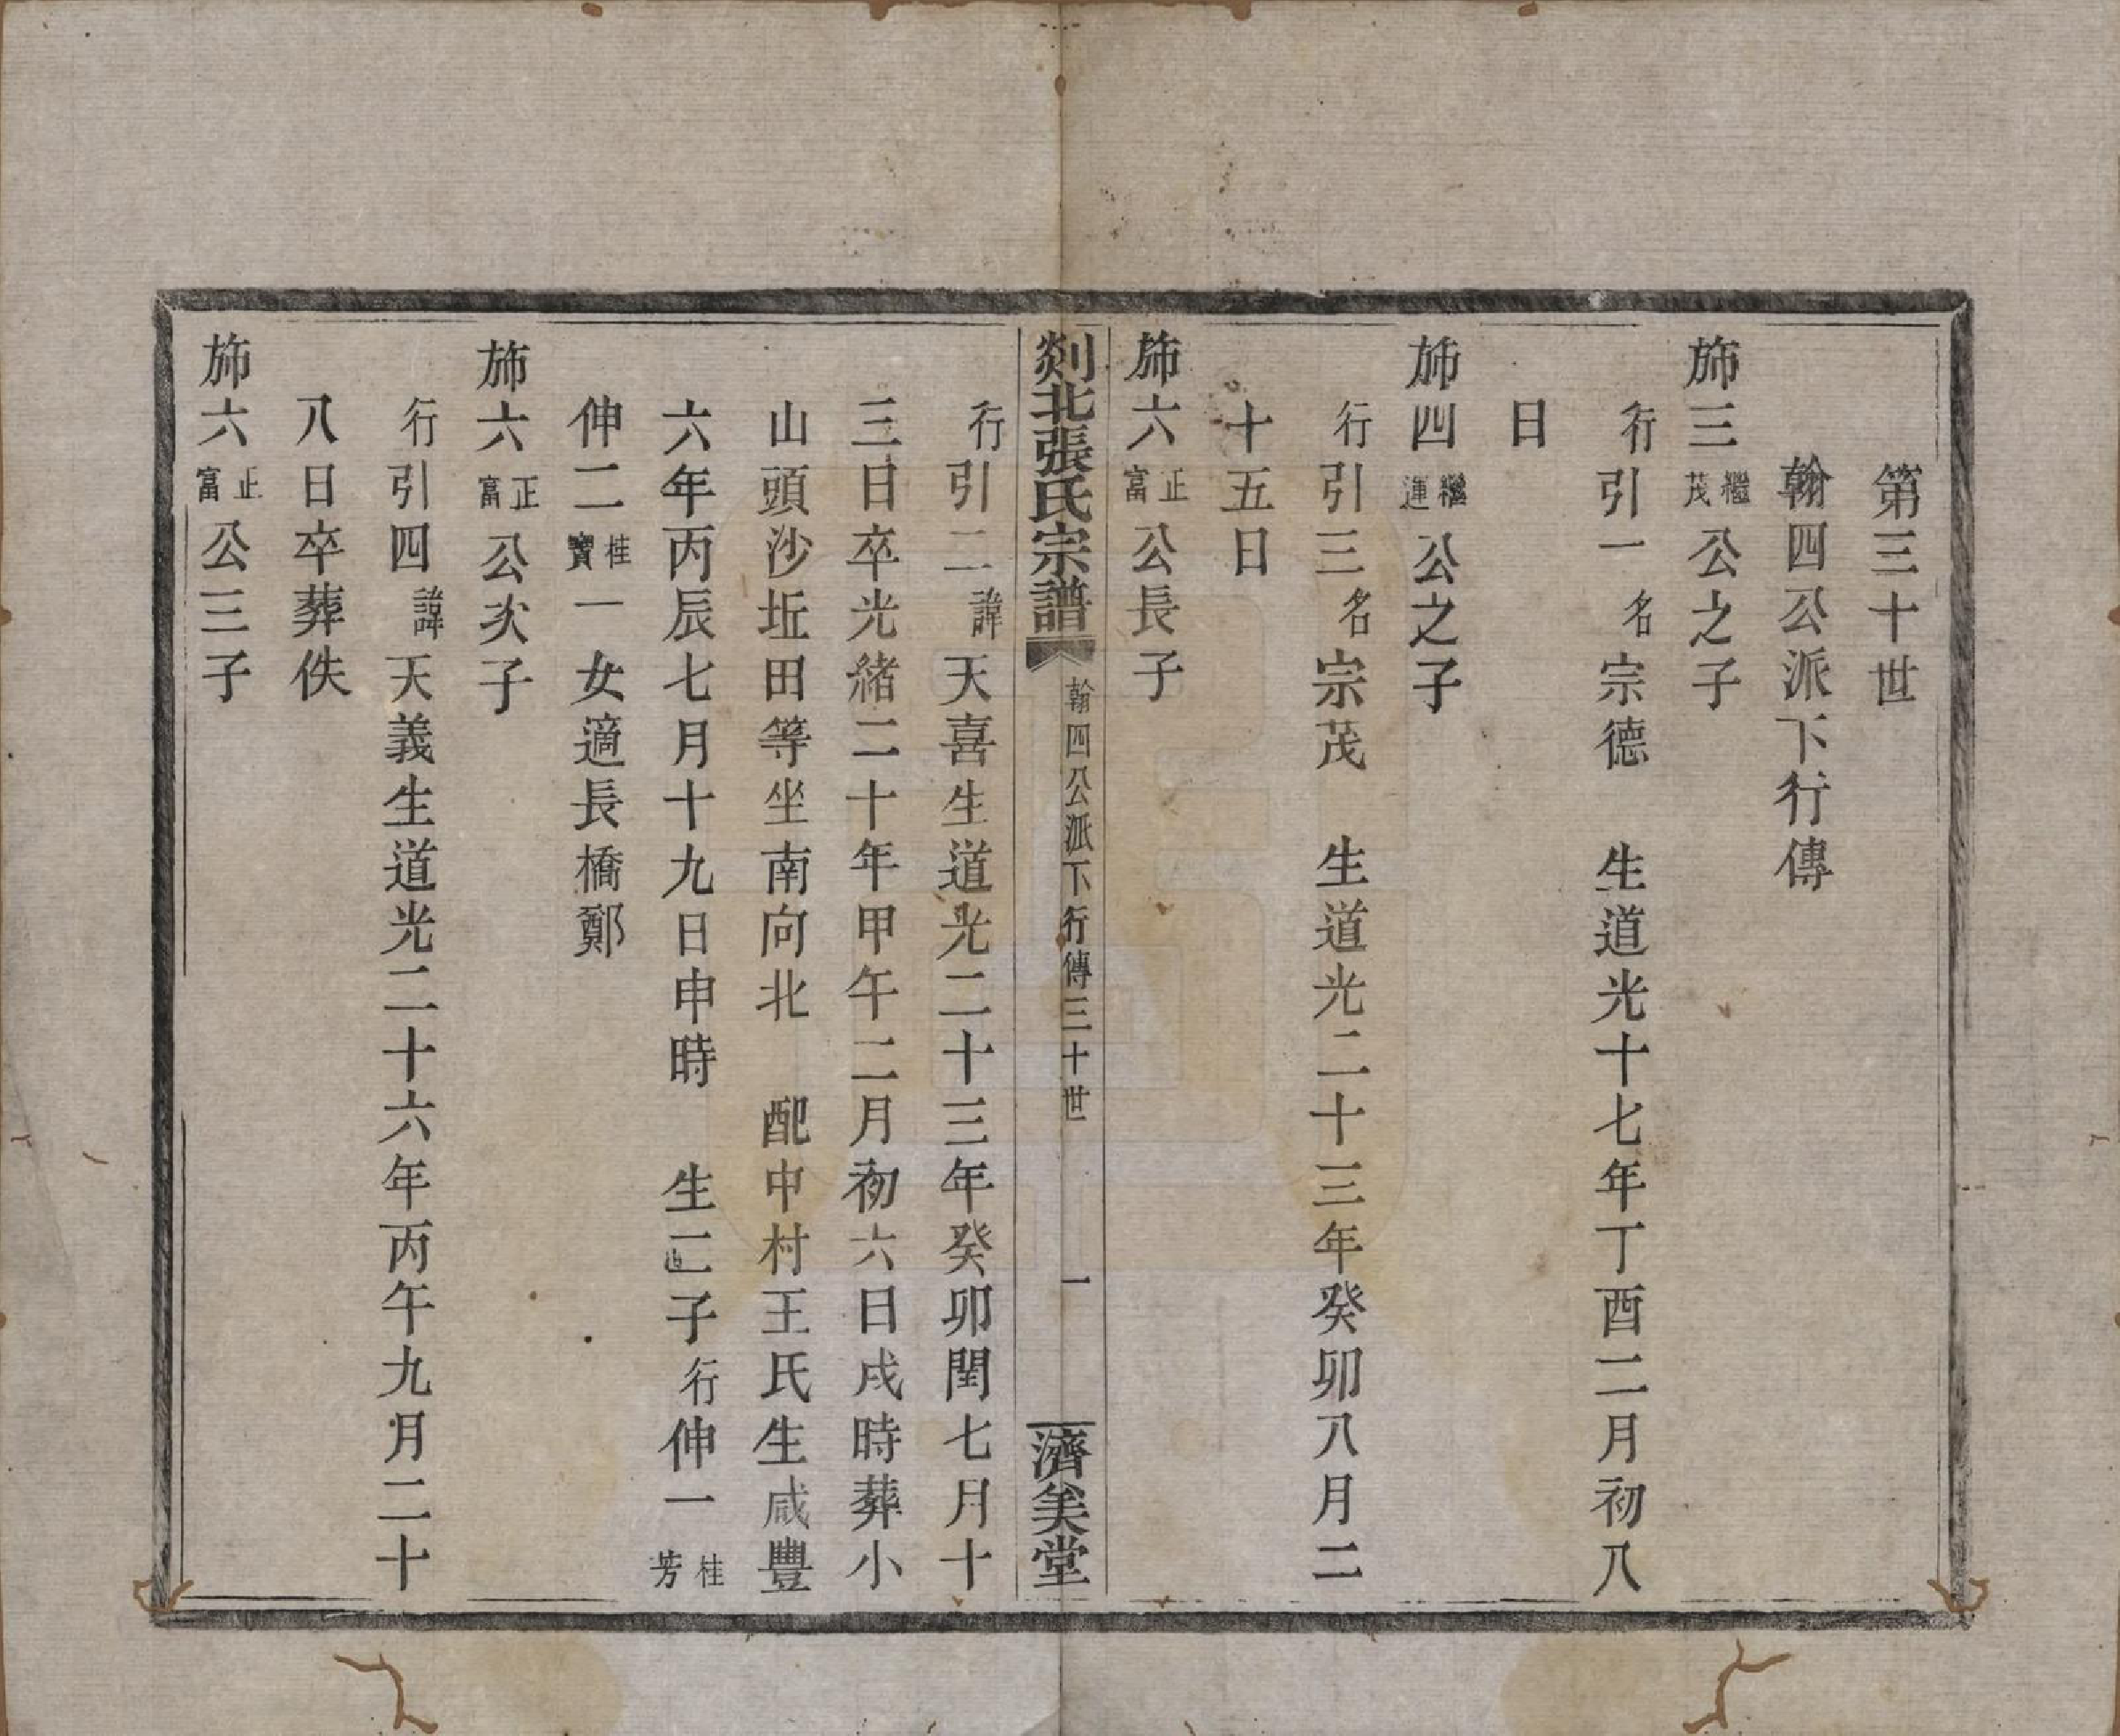 第三十世
翰四公派下行傳
斾三繼茂公之子
行引一名宗德　生道光十七年丁酉二月初八
日
斾四繼運公之子
行引三名宗茂　生道光二十三年癸卯八月二
十五日
斾六正富公長子
剡北張氏宗譜　翰四公派下行傳三十世　一　濟美堂
行引二諱天喜生道光二十三年癸卯閏七月十
三日卒光緒二十年甲午二月初六日戌時葬小
山頭沙坵田等坐南向北　配中村王氏生咸豐
六年丙辰七月十九日申時　生二子行伸一桂芳
伸二桂寶一女適長橋鄭
斾六正富公次子
行引四諱天義生道光二十六年丙午九月二十
八日卒葬佚
斾六正富公三子